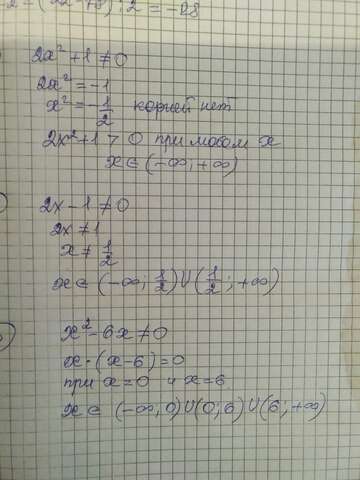 2x² + 1 ≠ 0
2x² = -1
x² = -1/2 корней нет
2x² + 1 > 0 при любом x
x ∈ (-∞; +∞)
2x - 1 ≠ 0
2x ≠ 1
x ≠ 1/2
x ∈ (-∞; 1/2) ∪ (1/2; +∞)
x² - 6x ≠ 0
x · (x - 6) = 0
при x = 0 и x = 6
x ∈ (-∞; 0) ∪ (0; 6) ∪ (6; +∞)